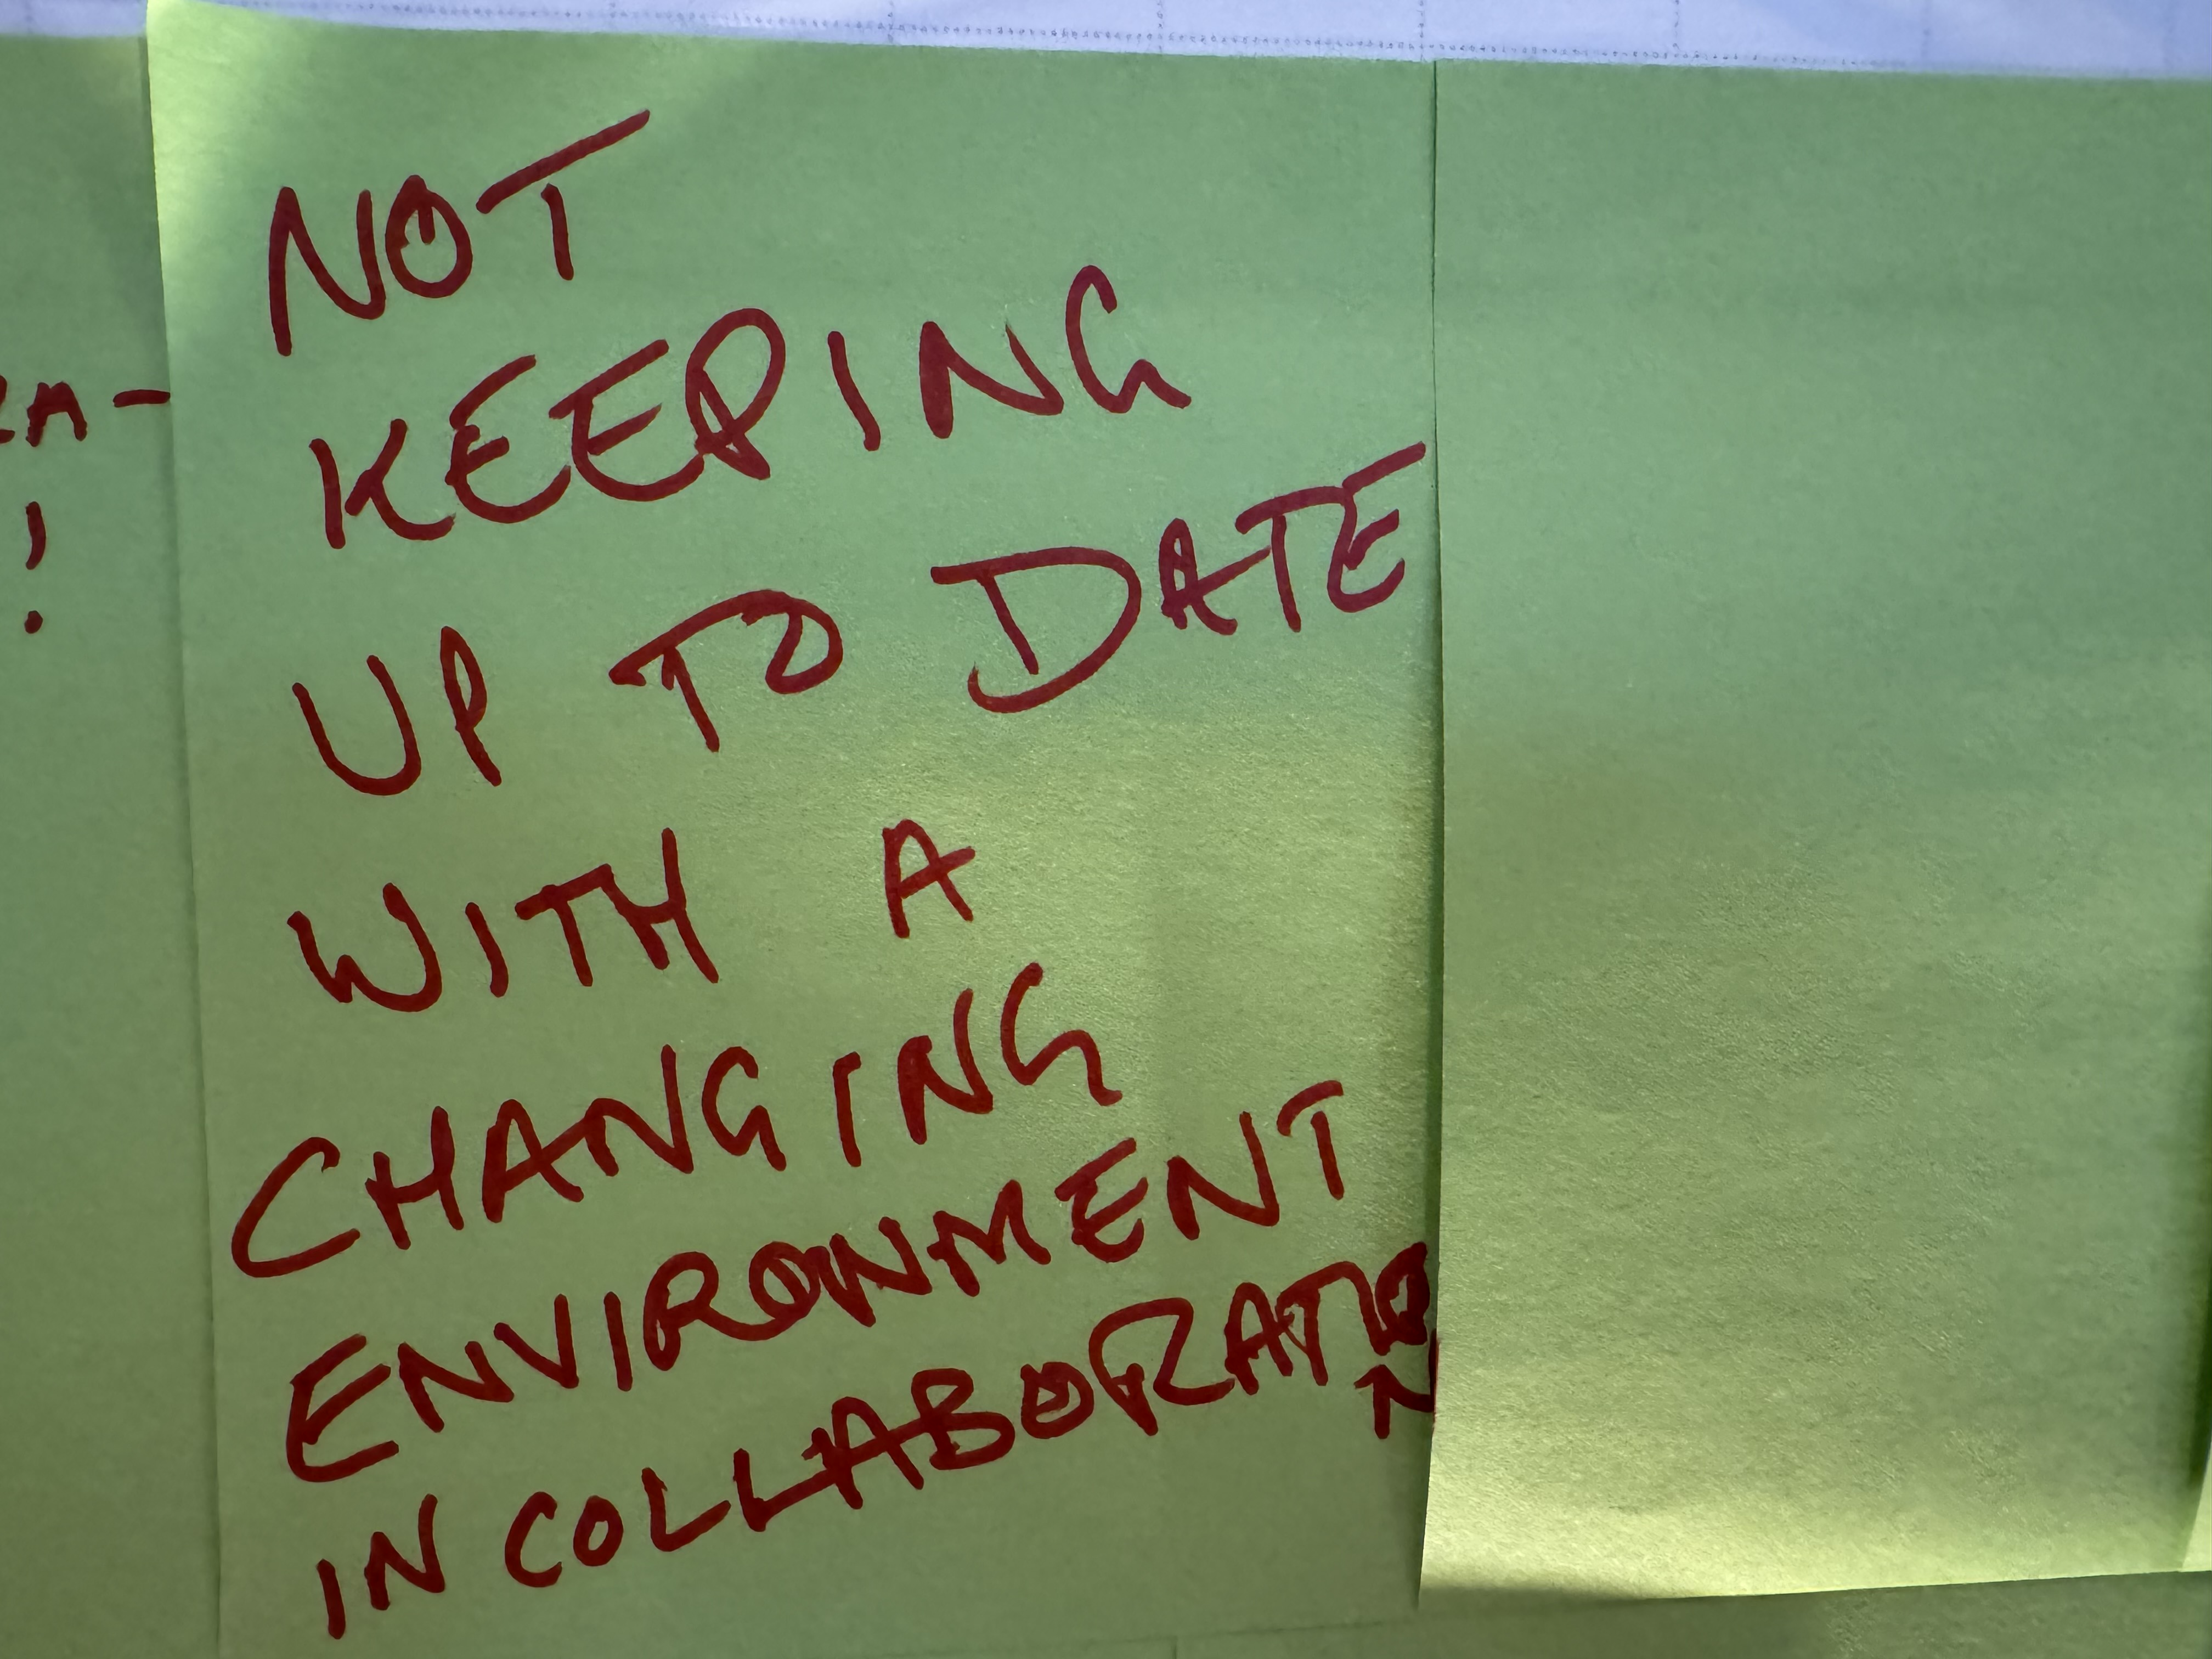 NOT
KEEPING
UP TO DATE
WITH A
CHANGING
ENVIRONMENT
IN COLLABORATIO
N